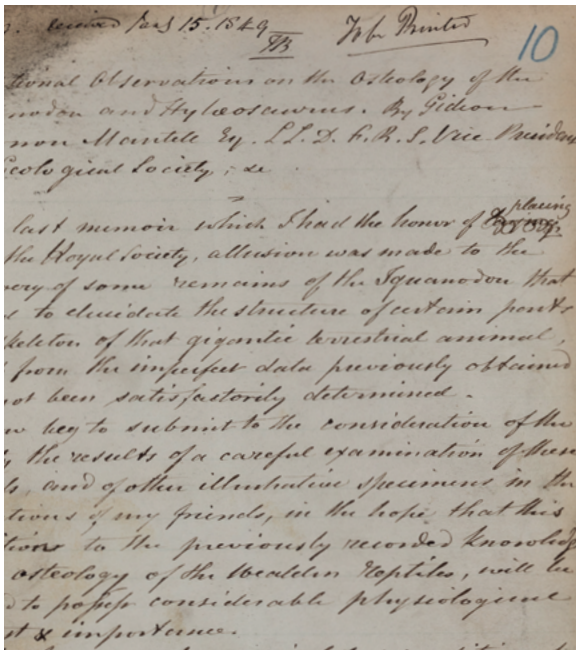 received Jan 15. 1849
To be Printed
10
tional Observations on the Osteology of the
nodon and Hylæosaurus. By Gideon
non Mantell Esq. LL.D. F.R.S. Vice President
eological Society, &c
last memoir which I had the honor of placing
the Royal Society, allusion was made to the
very of some remains of the Iguanodon that
s to elucidate the structure of certain parts
skeleton of that gigantic terrestrial animal,
from the imperfect data previously obtained
not been satisfactorily determined.
w beg to submit to the consideration of the
the results of a careful examination of these
and of other illustrative specimens in the
tions of my friends, in the hope that this
tion to the previously recorded knowledg
osteology of the Wealden Reptiles, will be
d to possess considerable physiological
st & importance.